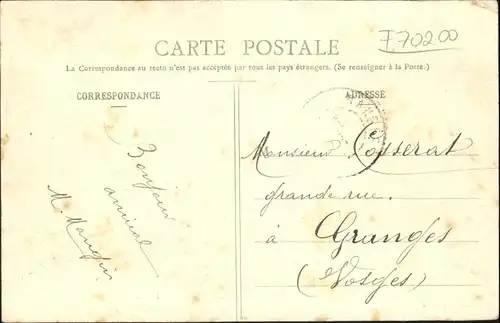 F70200
CARTE POSTALE
La Correspondance au recto n'est pas acceptée par tous les pays étrangers. (Se renseigner à la Poste.)
CORRESPONDANCE
Bonjour
amical
M. Mangin
ADRESSE
Monsieur Cosserat
grande rue.
à Granges
(Vosges)